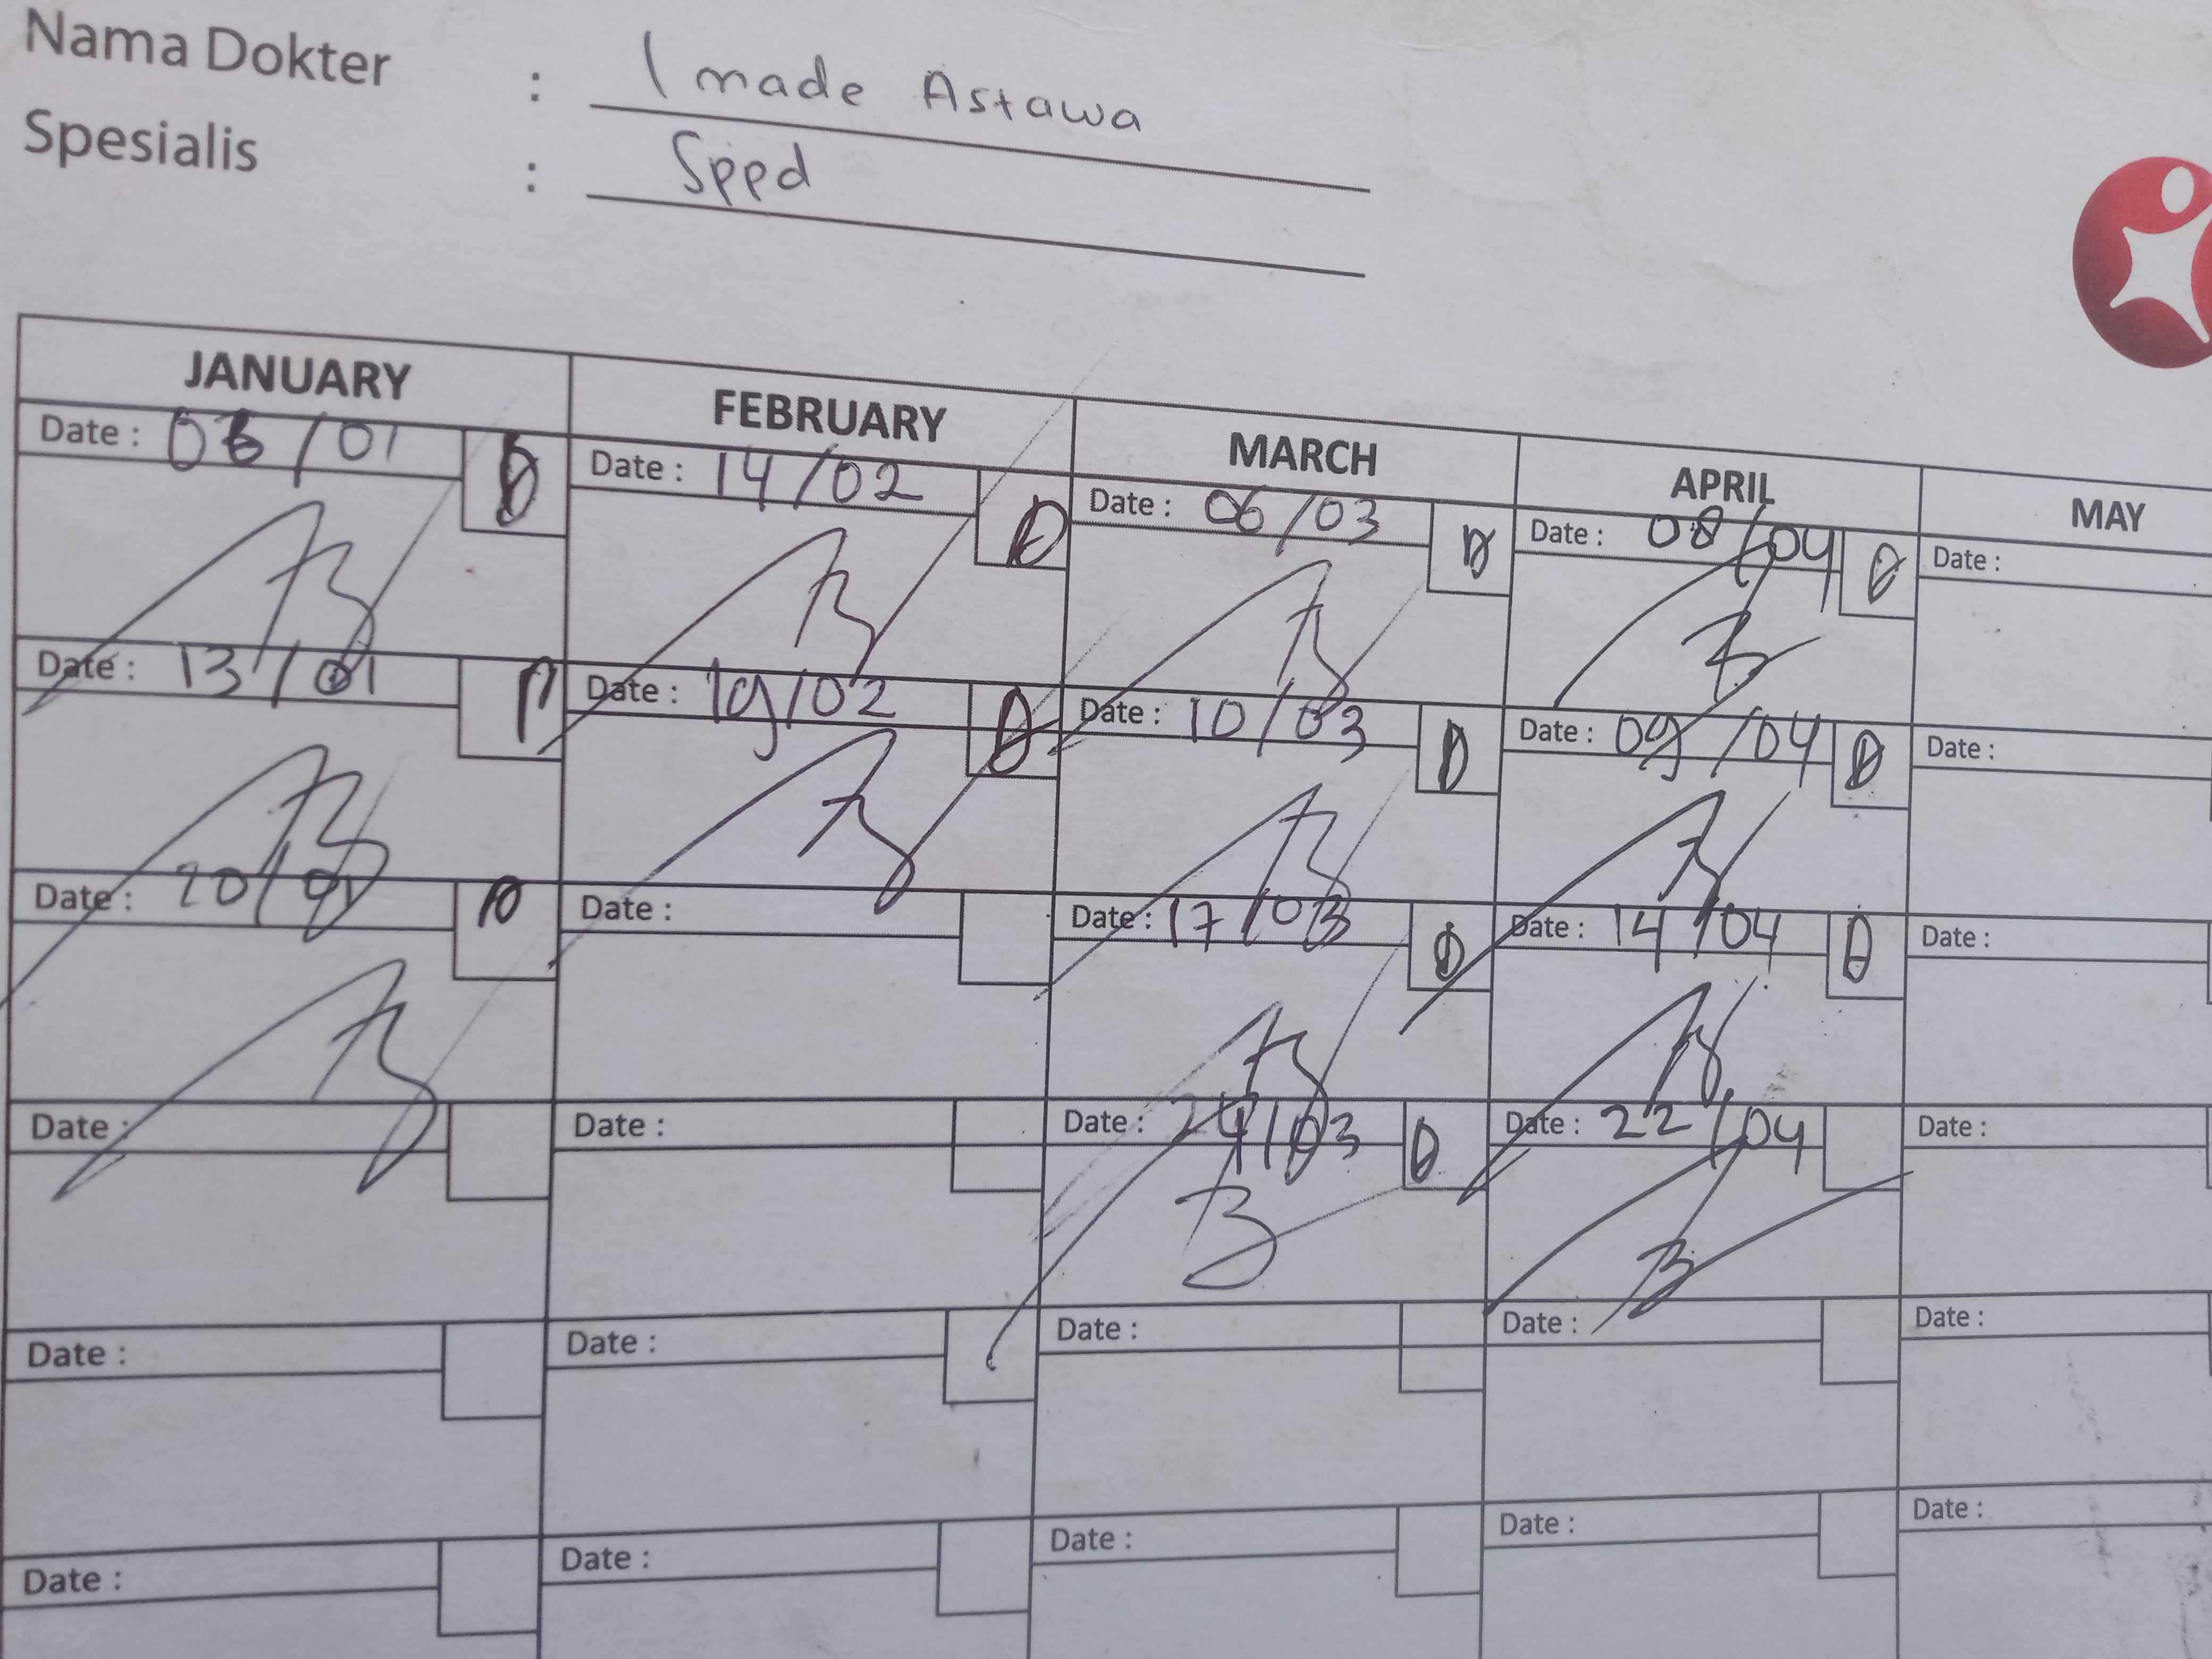 Nama Dokter : I made Astawa
Spesialis : Sppd
JANUARY FEBRUARY MARCH APRIL MAY
Date : 06/01 Date : 14/02 Date : 06/03 Date : 08/04 Date :
Date : 13/01 Date : 19/02 Date : 10/03 Date : 09/04 Date :
Date : 20/01 Date : Date : 17/03 Date : 14/04 Date :
Date : Date : Date : 24/03 Date : 22/04 Date :
Date : Date : Date : Date : Date :
Date : Date : Date : Date : Date :